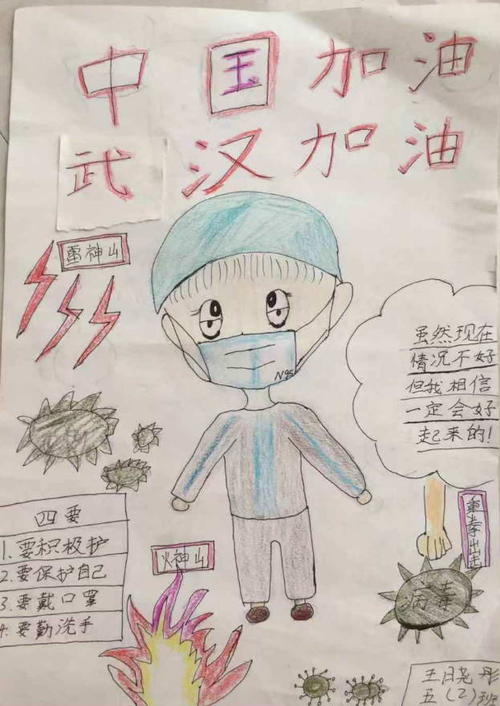 中国加油
武汉加油
雷神山
N95
虽然现在
情况不好
但我相信
一定会好
起来的!
四要
1.要积极护
2.要保护自己
3.要戴口罩
4.要勤洗手
火神山
重拳出击
病毒
王晓彤
五(2)班